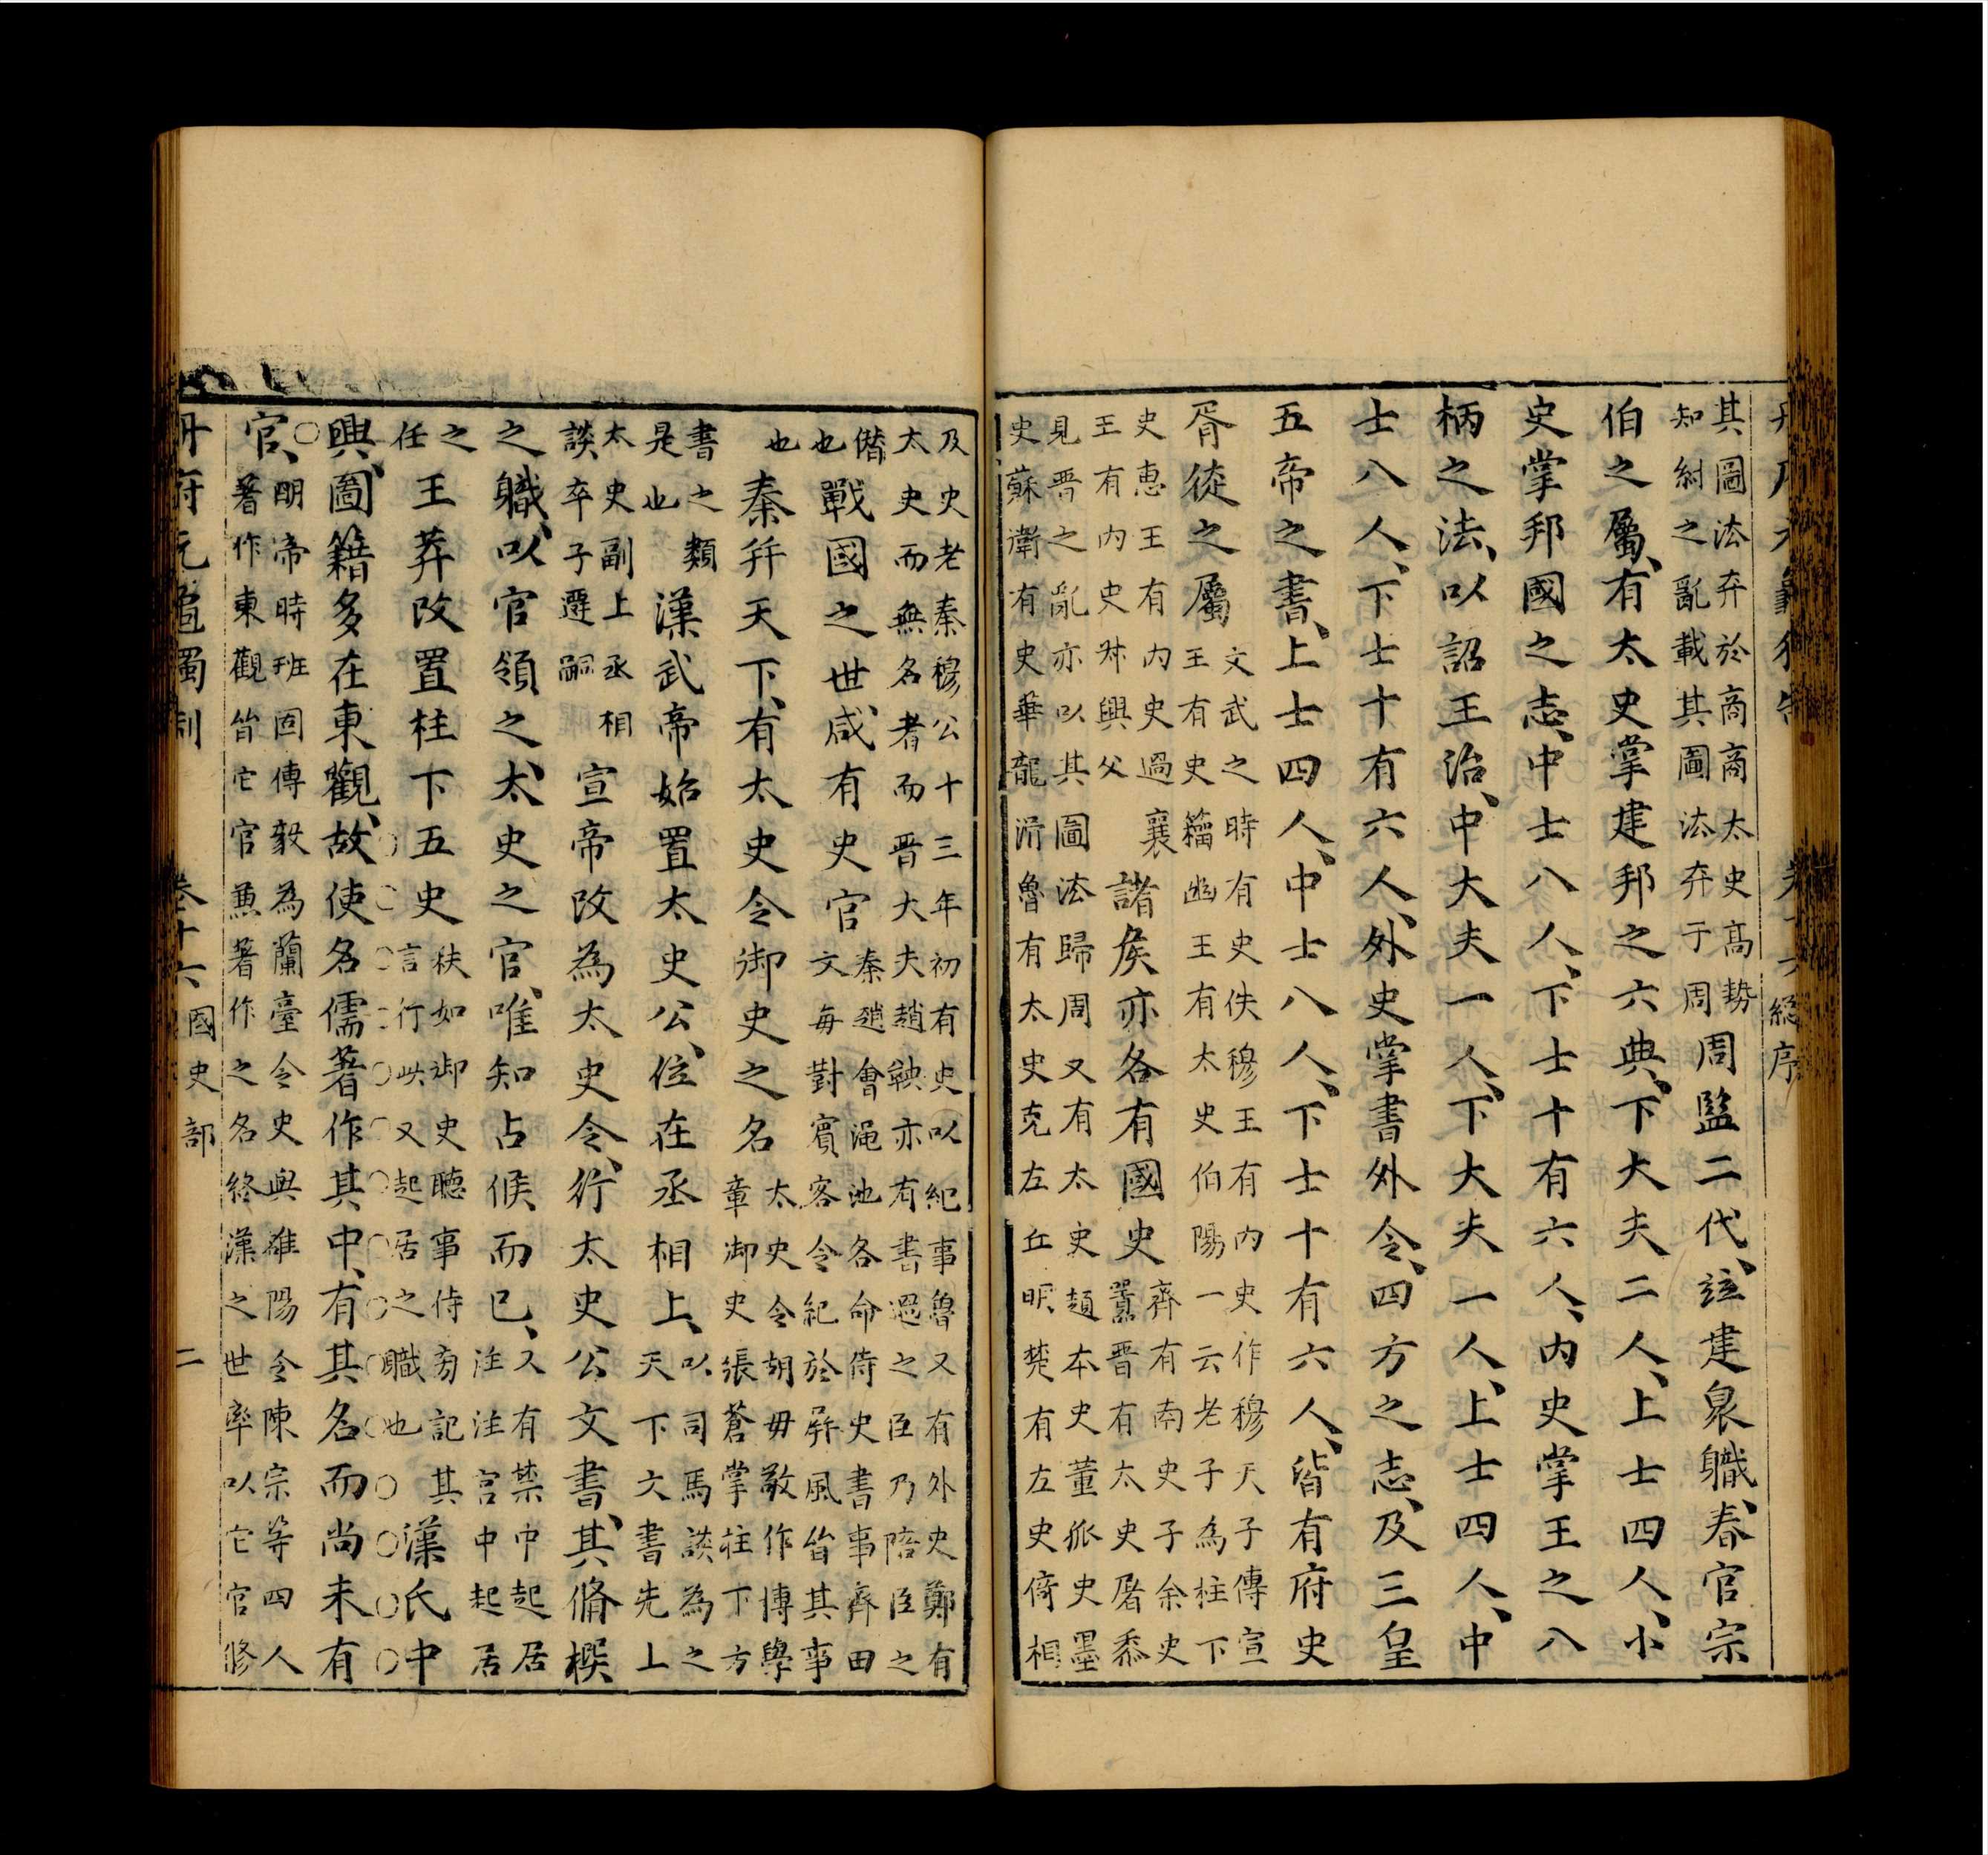 総序
其圖法弃於商商太史高勢
知紂之亂載其圖法弃于周
周監二代、竝建衆職、春官宗
伯之屬、有太史掌建邦之六典、下大夫二人、上士四人、小
史掌邦國之志、中士八人、下士十有六人、内史掌王之八
柄之法、以詔王治、中大夫一人、下大夫一人、上士四人、中
士八人、下士十有六人、外史掌書外令、四方之志、及三皇
五帝之書、上士四人、中士八人、下士十有六人、皆有府史
胥徒之屬
文武之時有史佚穆王有内史作穆天子傳宣
王有史籀幽王有太史伯陽一云老子為柱下
史惠王有内史過襄
王有内史叔興父
諸侯亦各有國史
齊有南史子余史
嚚晋有太史屠黍
見晋之亂亦以其圖法歸周又有太史趙本史董狐史墨
史蘇衛有史華龍滑魯有太史克左丘明楚有左史倚相
及史老秦穆公十三年初有史以紀事魯又有外史鄭有
太史而無名者而晋大夫趙鞅亦有書過之臣乃陪臣之
僭
也
戰國之世、咸有史官
秦趙會渑池各命侍史書事齊田
文每對賓客令紀於屏風皆其事
也
秦幷天下、有太史令御史之名
太史令胡毋敬作博學
章御史張蒼掌柱下方
書之類
是也
漢武帝始置太史公、位在丞相上、
以司馬談為之
天下文書先上
太史副上丞相
談卒子遷嗣
宣帝改為太史令、行太史公文書、其脩撰
之職、以官領之、太史之官、唯知占候而已、
又有禁中起居
注注宫中起居
之
任
王莽改置柱下五史
秩如御史聽事侍旁記其
言行此又起居之職也
漢氏中
興、圖籍多在東觀、故使名儒著作其中、有其名而尚未有
官、
明帝時班固傅毅為蘭臺令史與雒陽令陳宗等四人
著作東觀皆它官兼著作之名終漢之世率以它官修
册府元龜獨制 卷十六 國史部 二